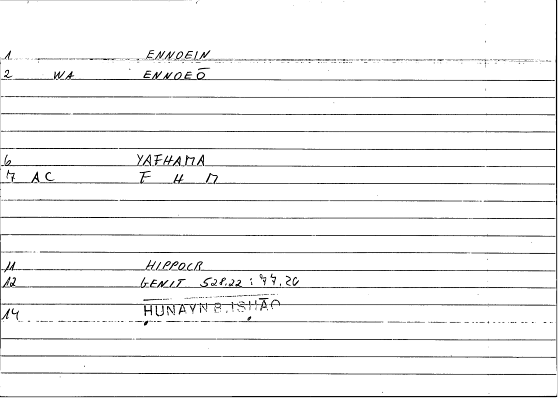 1 ENNOEIN
2 WA ENNOEŌ
6 YAFHAMA
7 AC F H M
11 HIPPOCR
12 GENIT 528,22 : 44,20
14 HUNAYN B. ISHĀQ